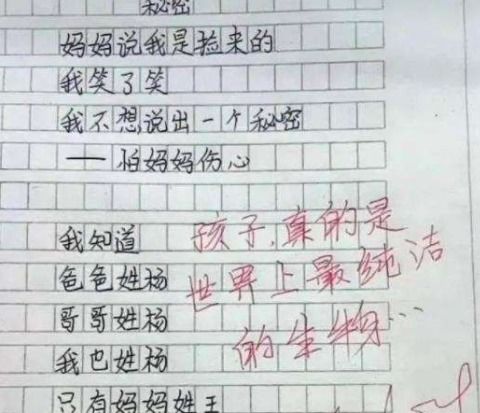 秘密
妈妈说我是捡来的
我笑了笑
我不想说出一个秘密
——怕妈妈伤心
我知道
爸爸姓杨
哥哥姓杨
我也姓杨
只有妈妈姓王
孩子，真的是
世界上最纯洁
的生物…